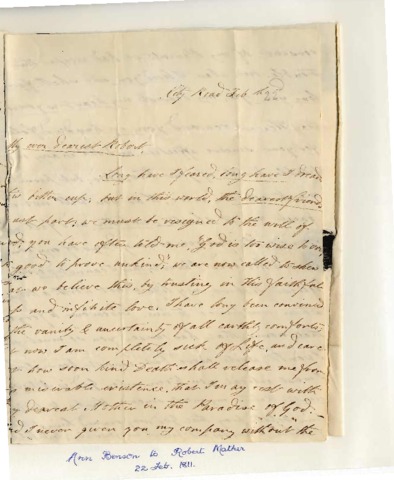 City Road Feb 22
My own dearest Robert.
Long have I feared, long have I dread
this bitter cup; but in this world, the dearest friends
must part; we must be resigned to the will of
God, you have often told me, "God is too wise to err
good to prove unkind," we are now called to shew
we believe this, by trusting in this faithful
and infinite love. I have long been convinced
the vanity & uncertainty of all earthly comforts,
now I am completely sick of Life, and care
how soon kind Death shall release me from
miserable existence, that I may rest with
my dearest Mother in the Paradise of God.
had I never given you my company without the
Ann Benson to Robert Mather
22 Feb. 1811.